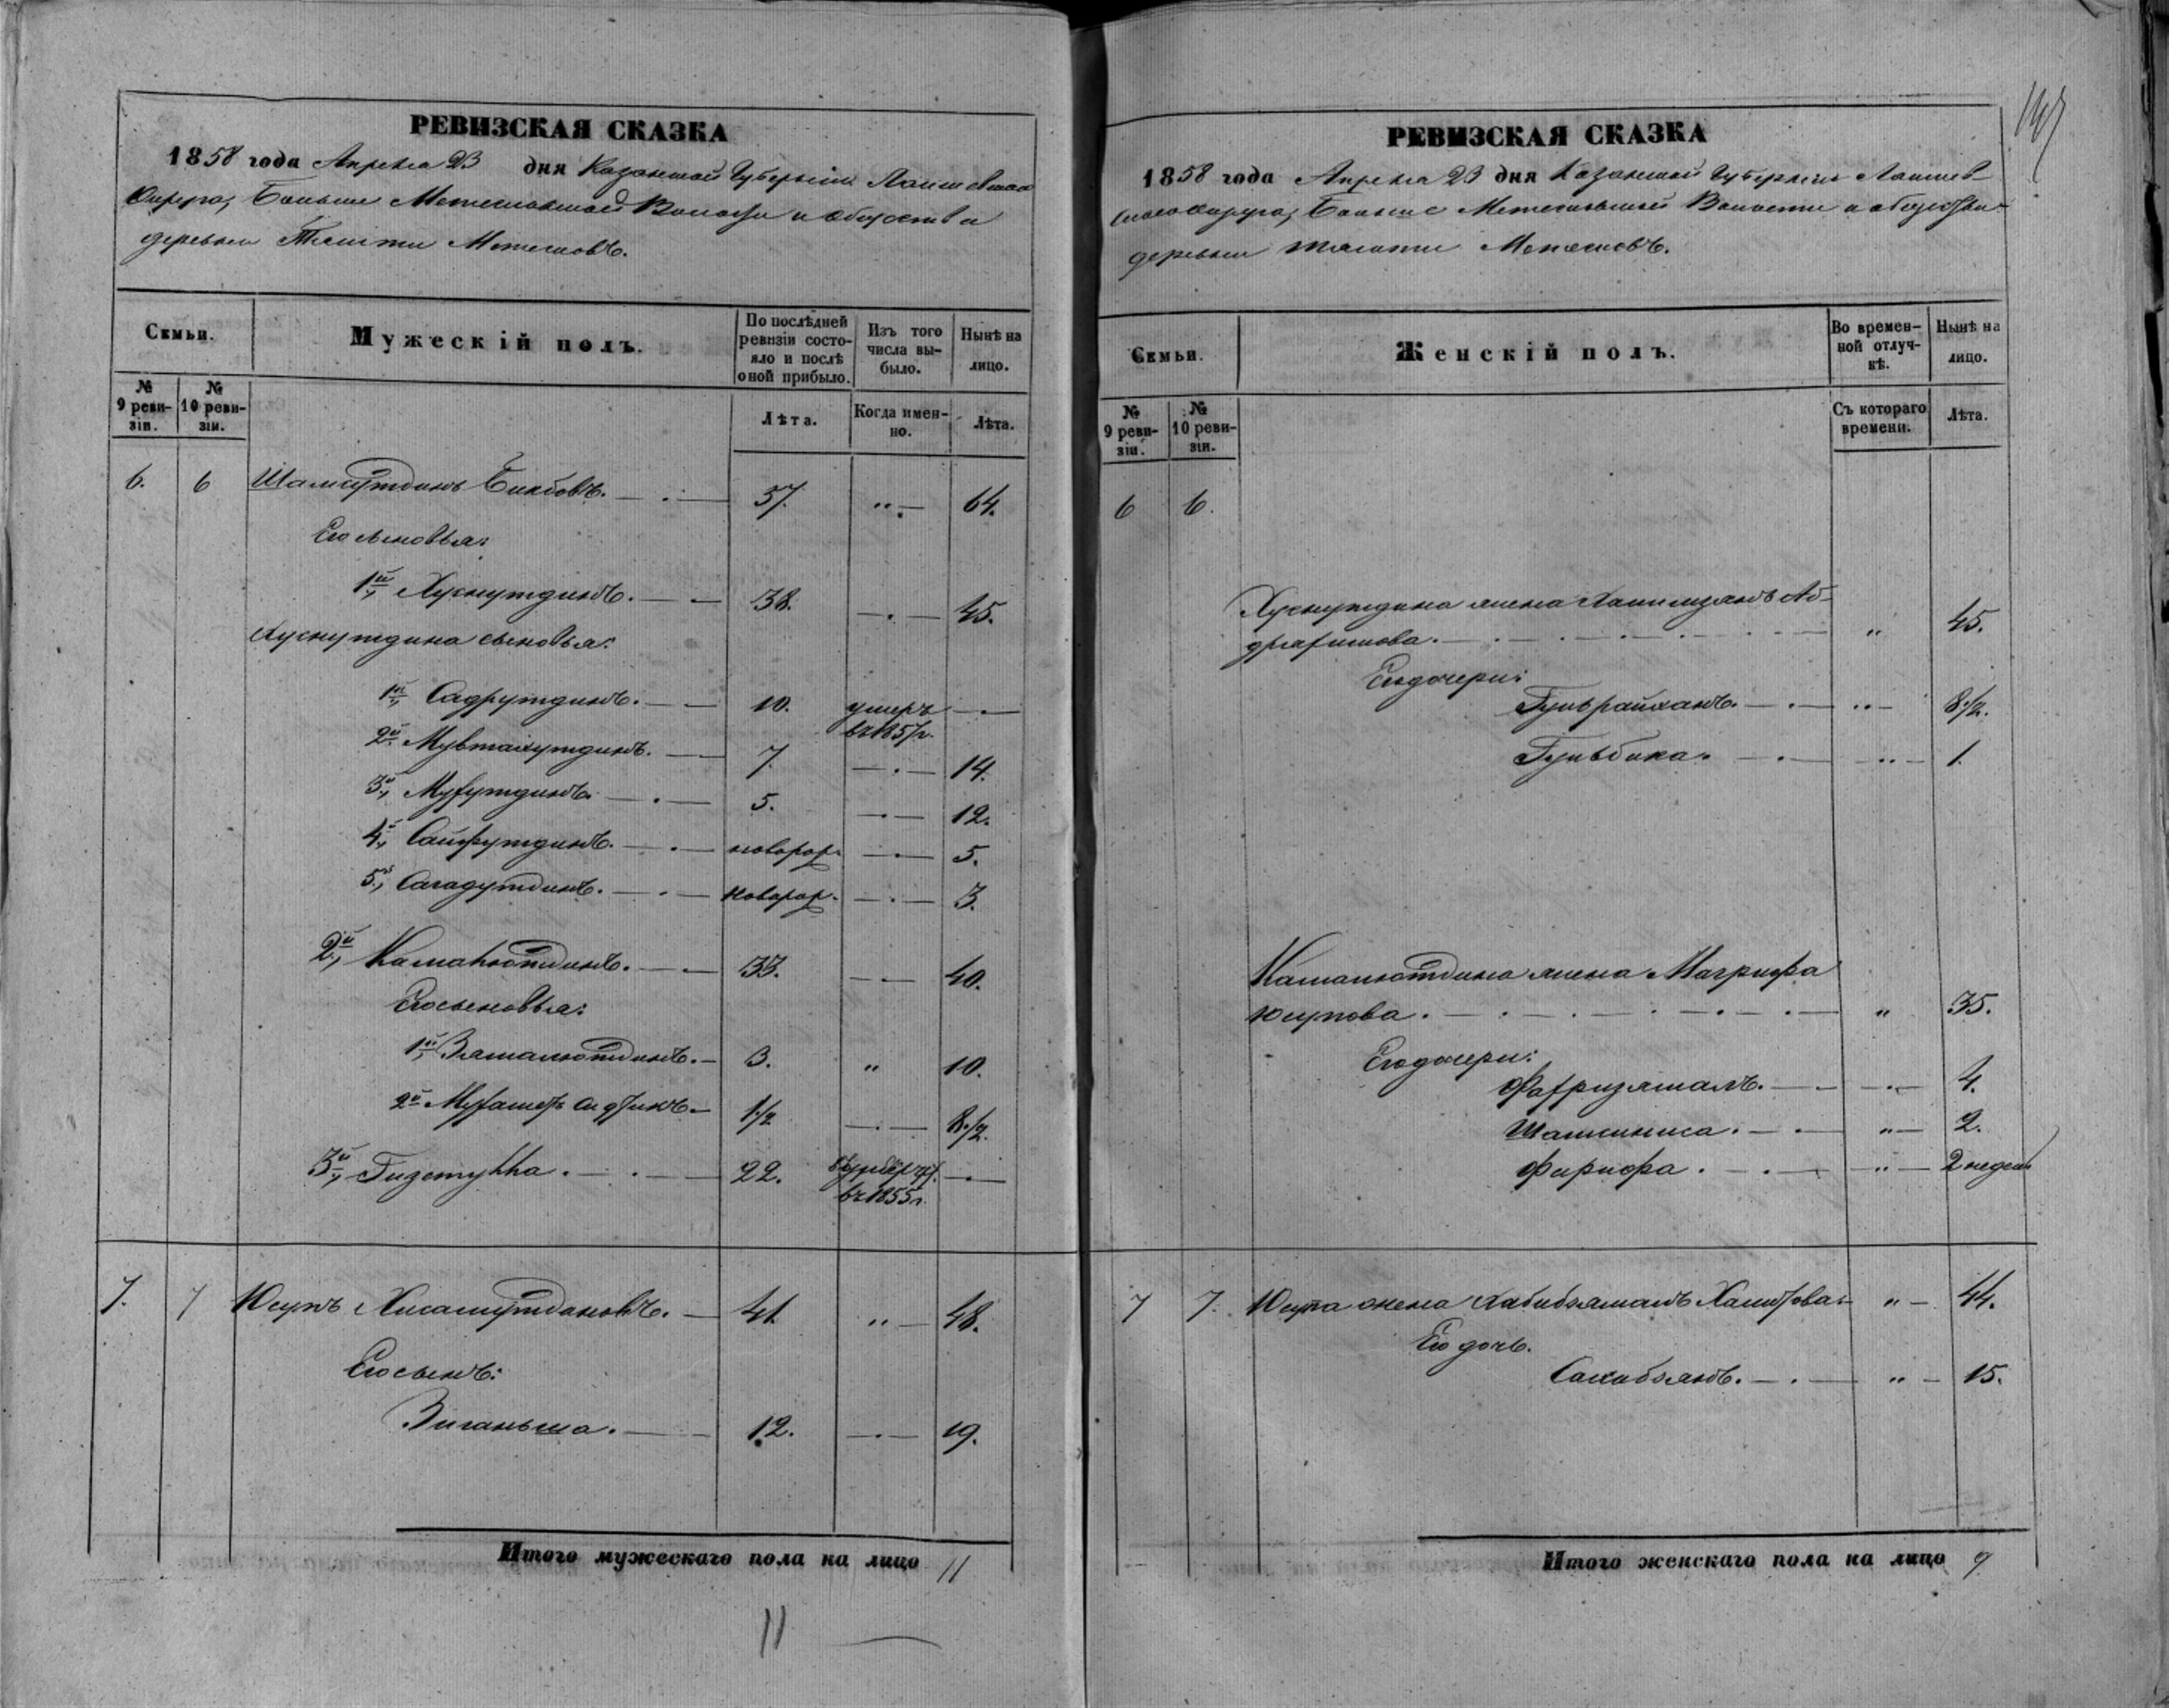 РЕВИЗСКАЯ СКАЗКА
1858 года Апреля 23 дня Казанской Губернiи Лаишевскаго
Округа, Больше Метескинской Волости и общества
деревни Метесковъ.
Семьи.
Мужескій полъ.
По послѣдней ревизіи состояло и послѣ оной прибыло.
Изъ того числа выбыло.
Нынѣ на лицо.
№ 9 ревизіи.
№ 10 ревизіи.
Лѣта.
Когда именно.
Лѣта.
6. 6 Шамсутдинъ 57. " 64.
Его сыновья:
1й, Хуснутдинъ. 38. 45.
Хуснутдина сыновья:
1й, Садрутдинъ. 10. умеръ въ 1857 г.
2й Мувтахутдинъ. 7. 14.
3й, 5. 12.
4й, Сайфутдинъ. новорож. 5.
5й, Сагадутдинъ. новорож. 3.
2й, Камалютдинъ. 33. 40.
Его сыновья:
1й, Зямалютдинъ. 3. " 10.
2й 1/2 8 1/2.
3й, 22. въ 1855 г.
7. 7 Юсупъ Хисамутдиновъ. 41 " 48.
Его сынъ:
Зиганьша. 12. 19.
Итого мужескаго пола на лицо 11
11
РЕВИЗСКАЯ СКАЗКА
1858 года Апреля 23 дня Казанской Губернiи Лаишев
скаго Округа, Больше Метескинской Волости и общества
деревни Метесковъ.
Семьи.
Женскій полъ.
Во временной отлучкѣ.
Нынѣ на лицо.
№ 9 ревизіи.
№ 10 ревизіи.
Съ котораго времени.
Лѣта.
6 6.
Хуснутдина жена " 45.
Его дочери:
Гульрайханъ. " 8 1/2.
Гульбика. " 1.
Камалютдина жена Магрифа
Юсупова. " 35.
Его дочери:
4.
Шамсиниса. " 2.
Фарифа. " 2 недели
7 7. Юсупа жена Хабибзямалъ " 44.
Его дочь.
Сахибзянъ. " 15.
Итого женскаго пола на лицо 9